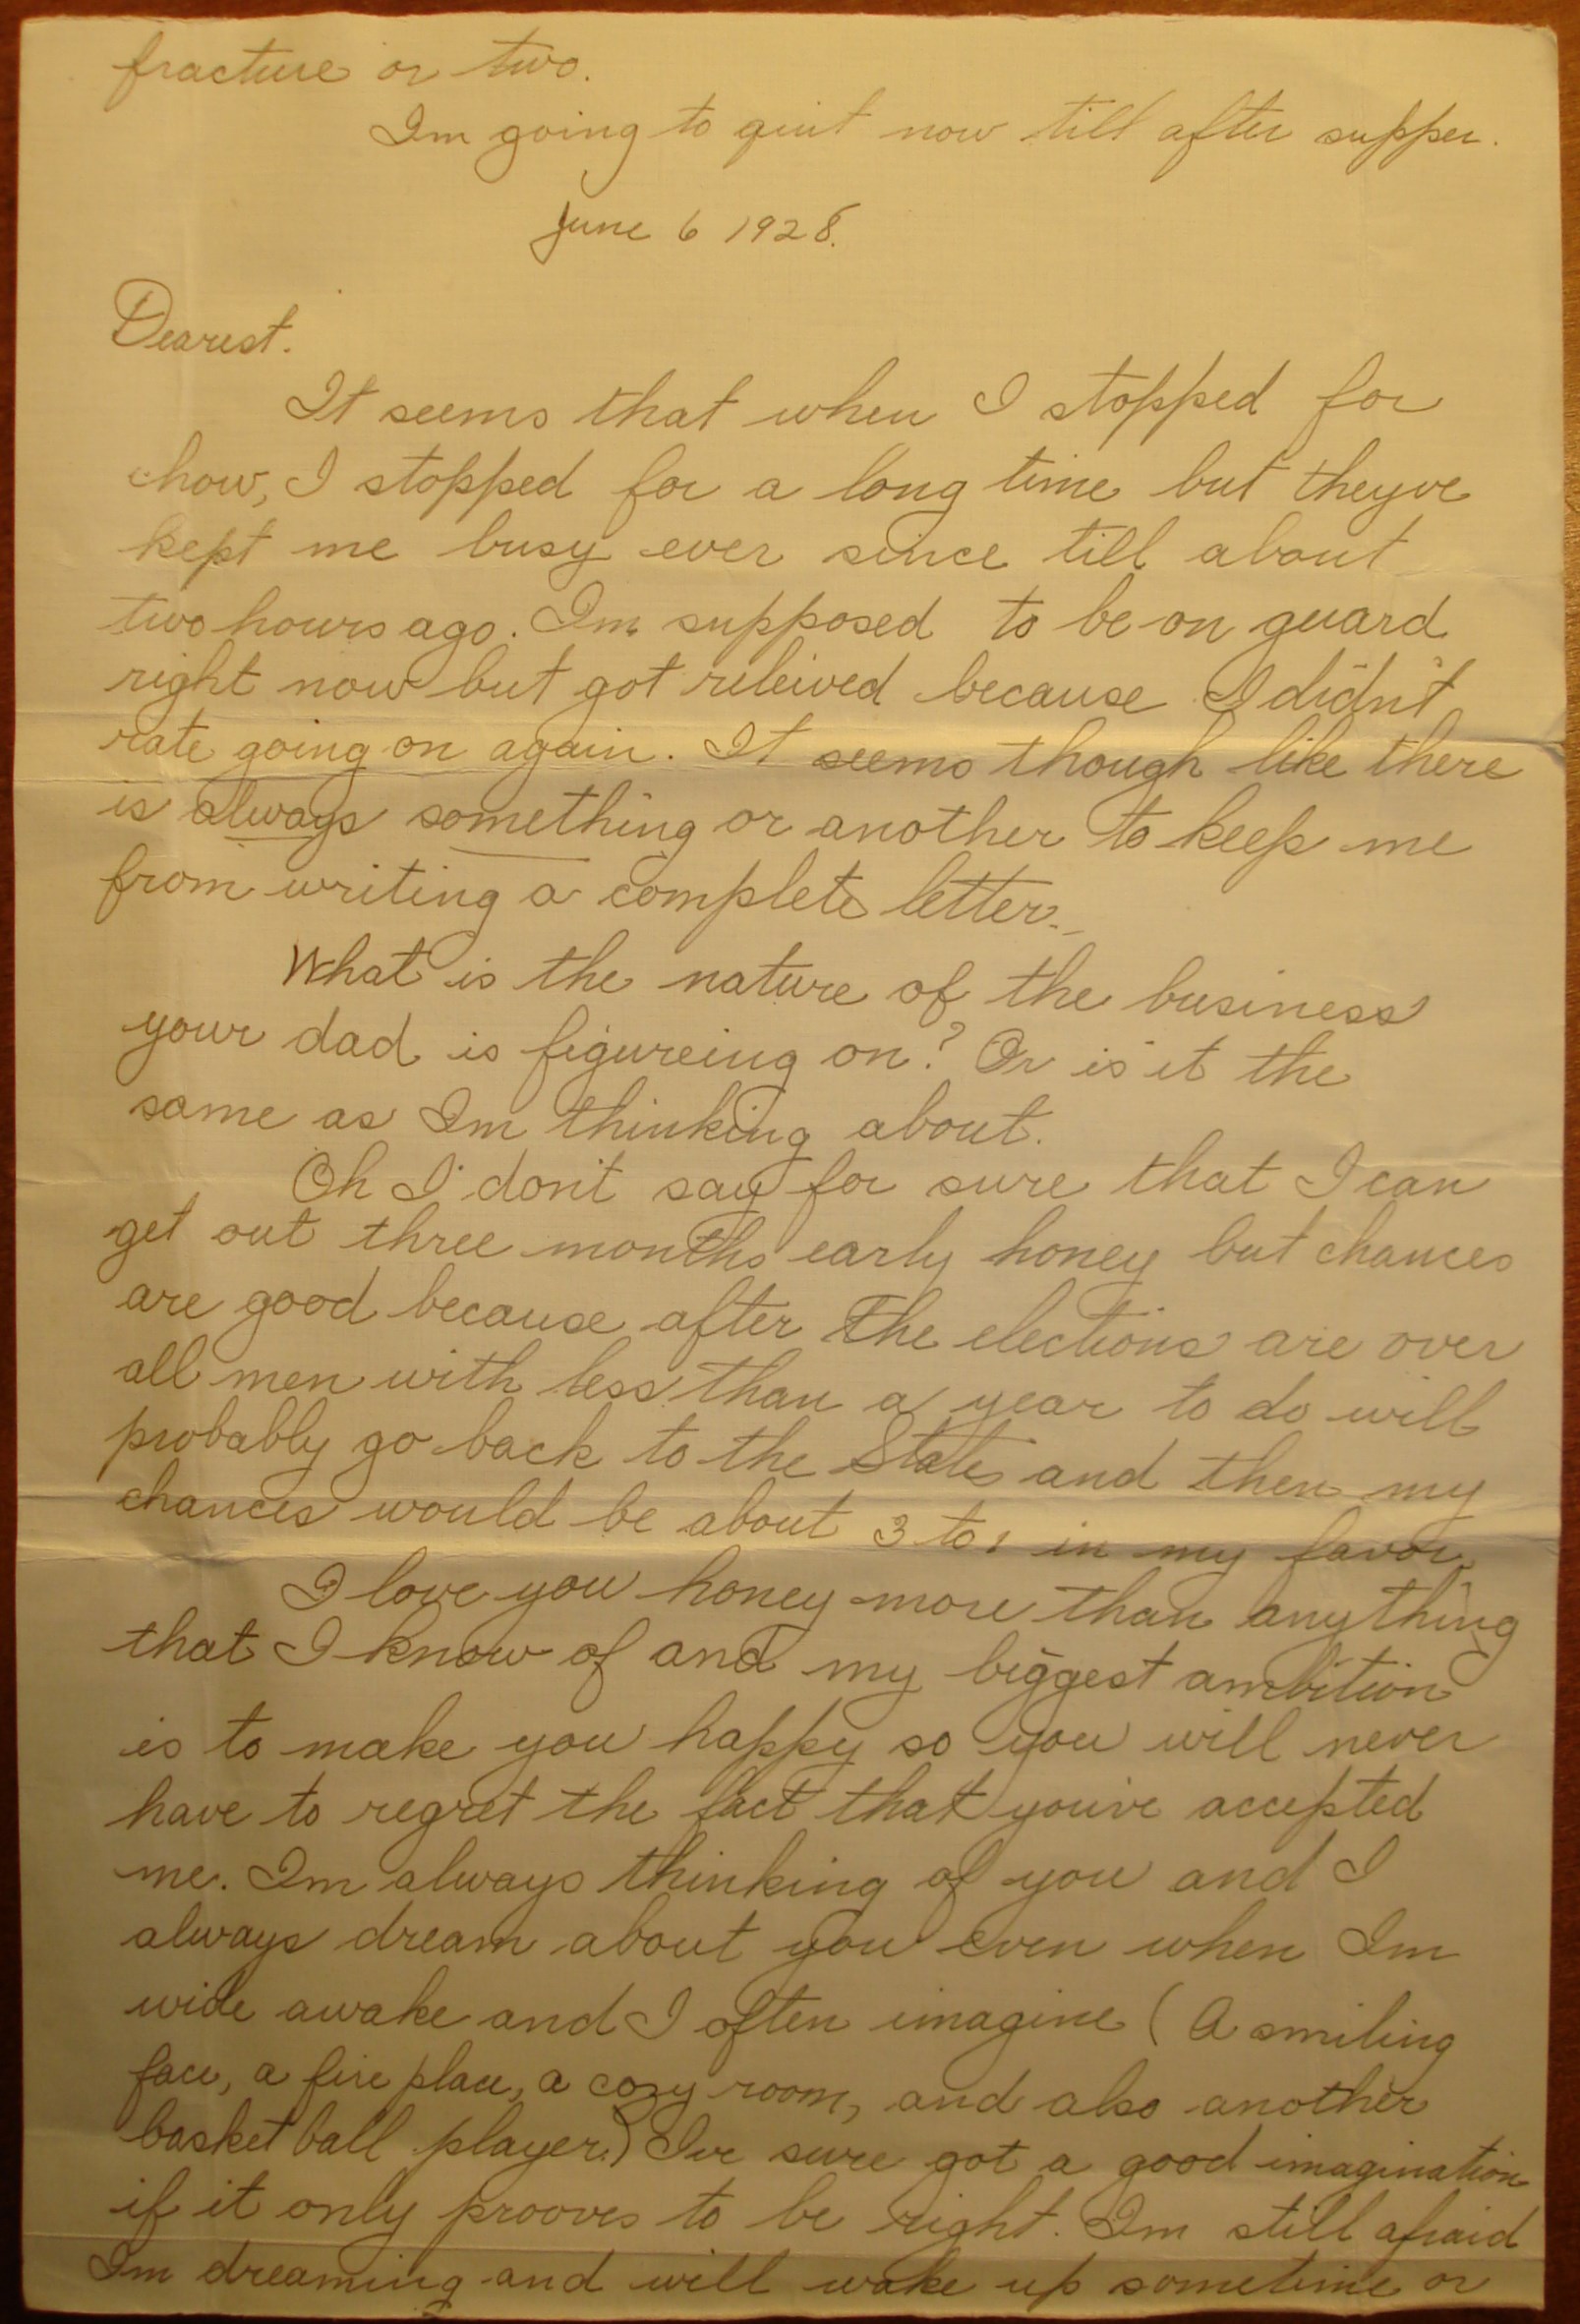 fracture or two.
Im going to quit now till after supper.
June 6 1928.
Dearest.
It seems that when I stopped for
chow, I stopped for a long time but theyve
kept me busy ever since till about
two hours ago. Im supposed to be on guard
right now but got releived because I did'nt
rate going on again. It seems though like there
is always something or another to keep me
from writing a complete letter.
What is the nature of the business
your dad is figureing on? Or is it the
same as Im thinking about.
Oh I don't say for sure that I can
get out three months early honey but chances
are good because after the elections are over
all men with less than a year to do will
probably go back to the States and then my
chances would be about 3 to 1 in my favor.
I love you honey more than anything
that I know of and my biggest ambition
is to make you happy so you will never
have to regret the fact that you've accepted
me. Im always thinking of you and I
always dream about you even when Im
wide awake and I often imagine (A smiling
face, a fire place, a cozy room, and also another
basket ball player.) Ive sure got a good imagination
if it only prooves to be right. Im still afraid
Im dreaming and will wake up sometime or